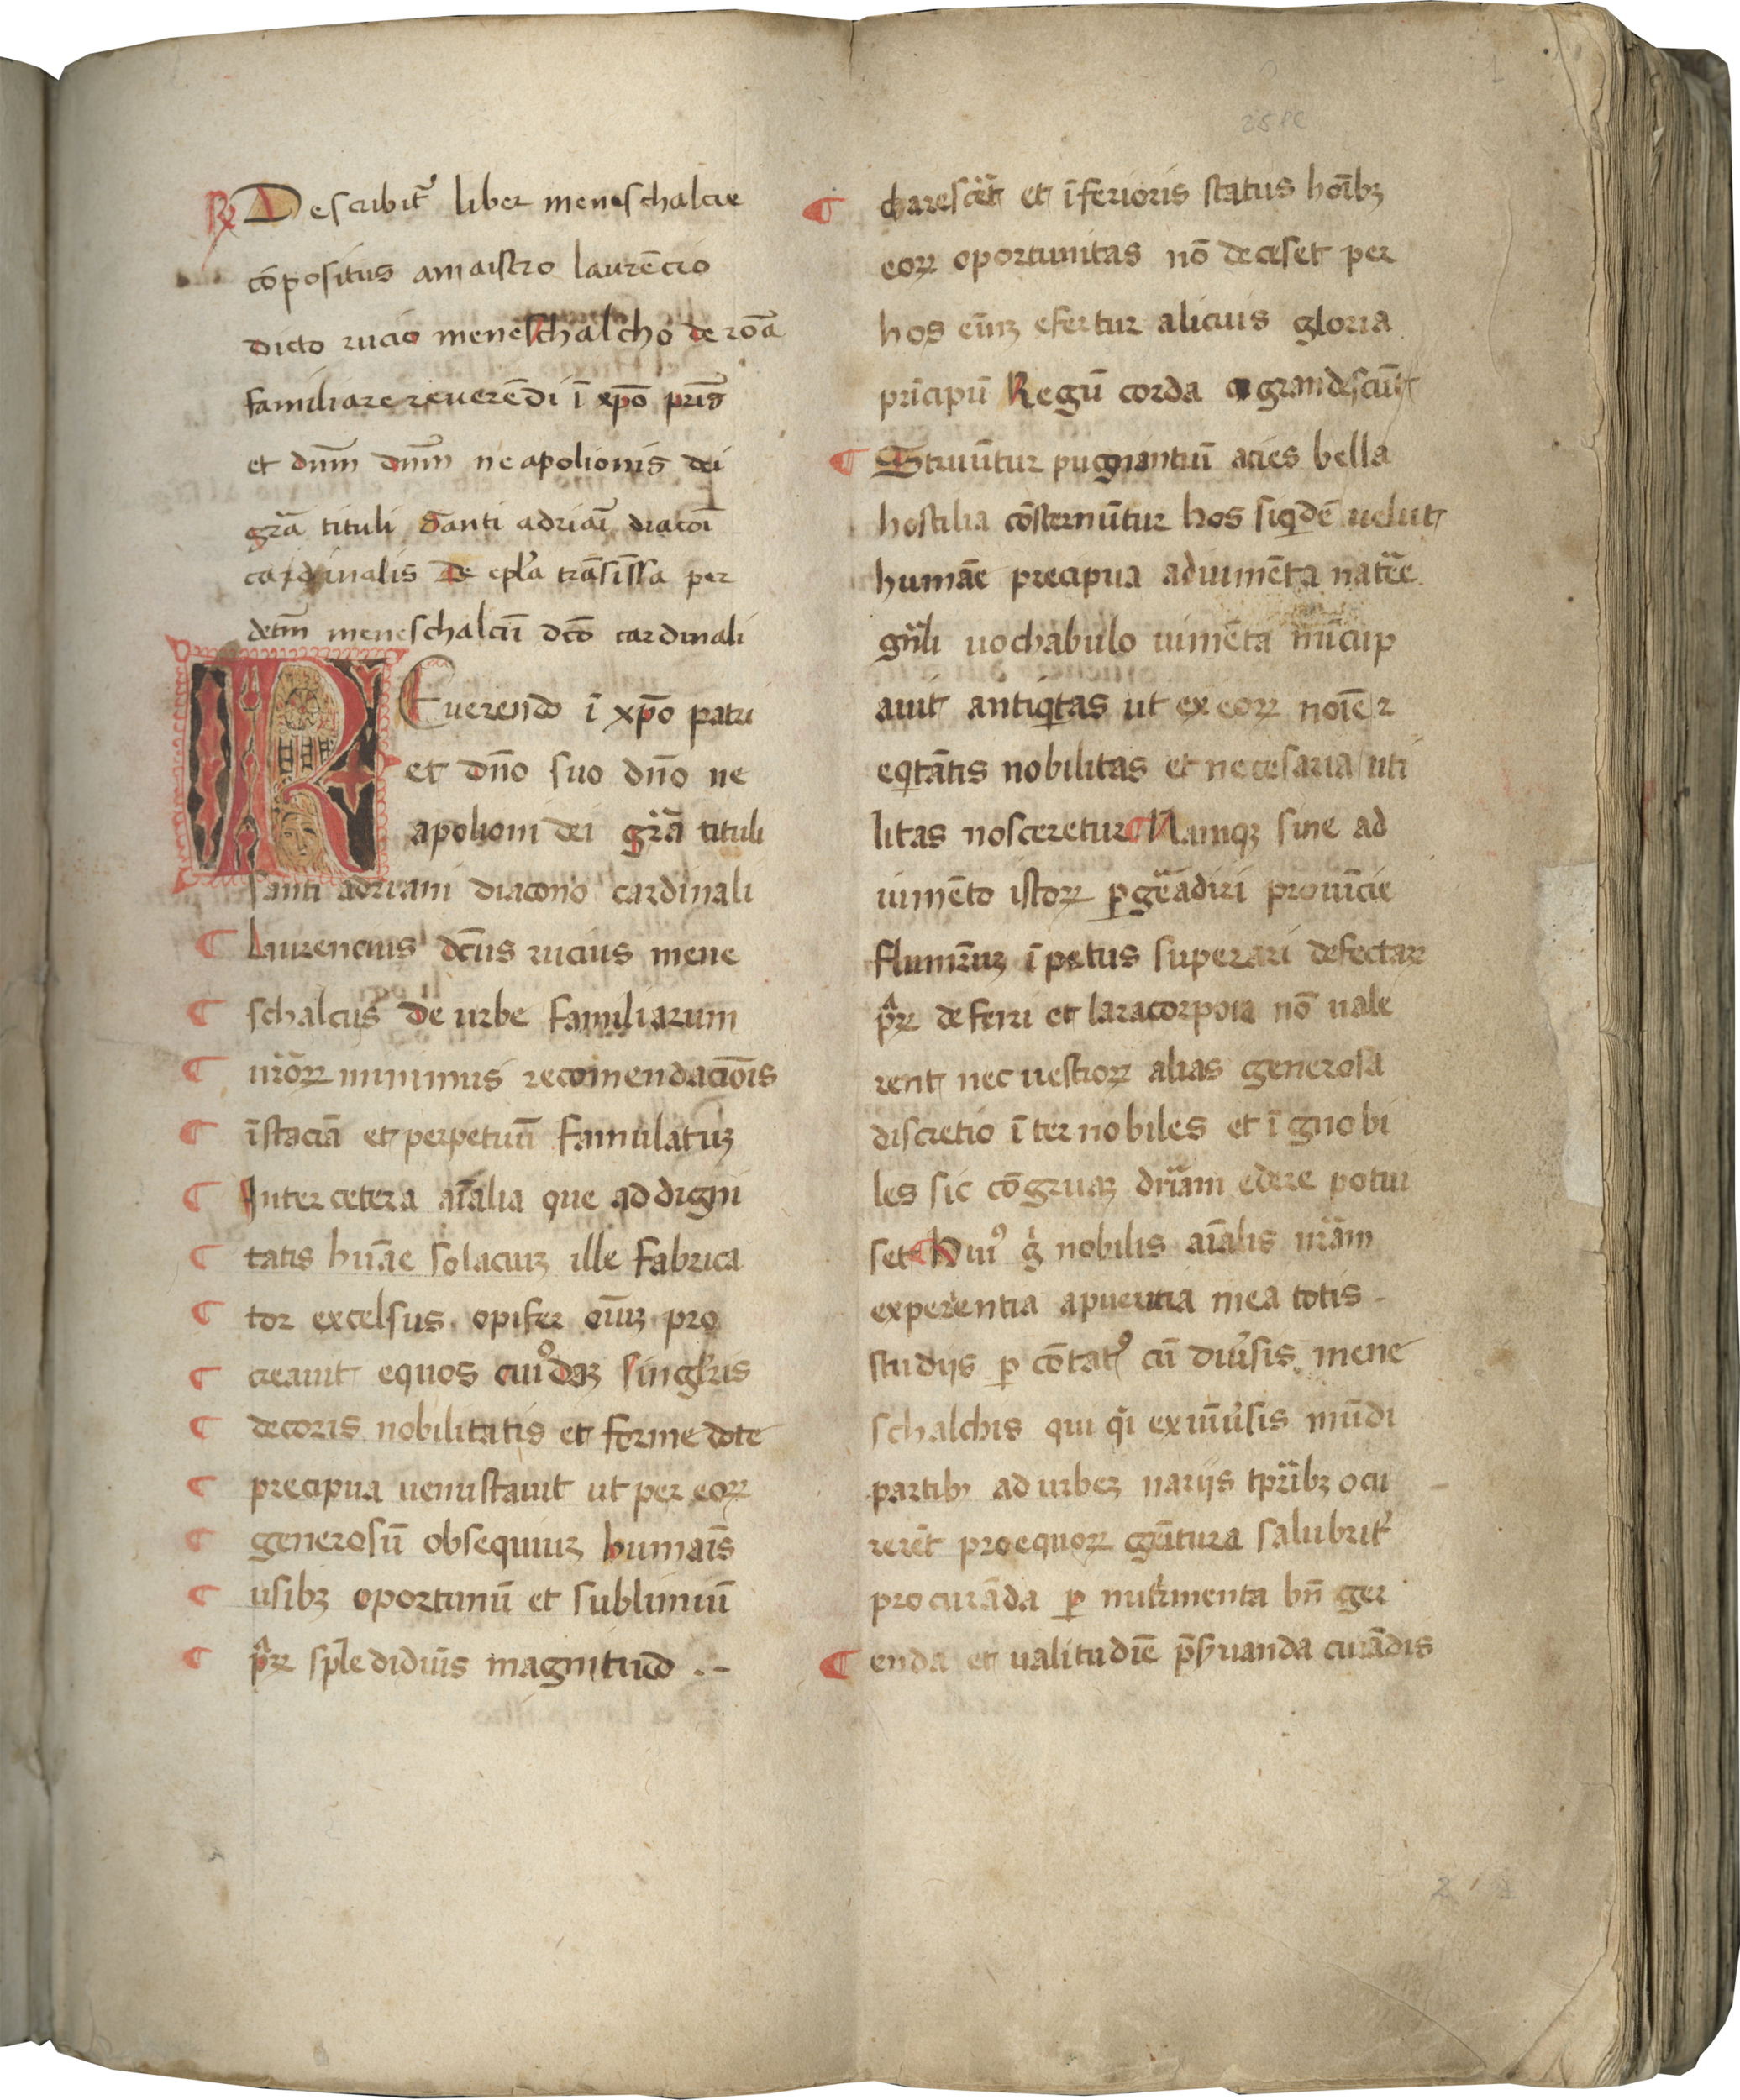 Describit᷑ liber meneschalcie
cōpositus amaistro laurēcio
dicto rucio meneschalcho de roā
familiare reuerēdi ī xp̄o pr̄is
et dn̄m dn̄m neapolionis dei
gr̄a tituli santi adriāi diacōi
cardinalis De epl̄a trāsissa per
detm̄ meneschalcū dc̄o cardinali
REuerendo ī xp̄o patri
et dn̄o suo dn̄o ne
apolioni dei gr̄a tituli
santi adriani diacono cardinali
¶ laurencius dc̄us rucius mene
¶ schalcus de urbe familiarum
¶ ur̄oꝝ minimus recomendaciōis
¶ īstaciā et perpetuū famulatuꝫ
¶ Inter cetera aīalia que ad digni
¶ tatis huāe solaciuꝫ ille fabrica
¶ tor excelsus opifex oīuꝫ pro
¶ creauit equos cuiꝰdaꝫ singl̄ris
¶ decoris nobilitatis et forme dote
¶ precipua uenustauit ut per eoꝝ
¶ generosū obsequiuꝫ humaīs
¶ usibꝫ oportunū et sublimiū
¶ pr̄ꝝ splēdidiu᷑s magnitudo .-
¶ charesc̄et et īferioris status hoībꝫ
eoꝝ oportunitas nō deeset per
hos enīꝫ efertur alicuis gloria
prīcipū Regū corda agrandescūt
¶ Struūtur pugnantiū acies bella
hostilia cōsternūtur hos siqͥdē uelut
humāe precipua adiumēta nat᷑ae
gn̄li uochabulo iumēta nūcup
auit antiqͥtas ut ex eoꝝ noīe ⁊
eqͥtātis nobilitas et necesaria uti
litas nosceretur ¶ Namqꝫ sine ad
iumēto istoꝝ ꝑgr̄adiri prouīcie
flumīuꝫ īpetus superari defectaꝝ
pr̄ꝝ deferri et lara corpora nō uale
rent nec uestioꝝ alias generosa
discretio īter nobiles et īgnobi
les sic cōgruaꝫ dr̄iam edere potui
set ¶ Huiꝰ gͥ nobilis aīalis ur̄am
experientia apuericia mea totis -
studiis ꝑcōtatꝰ cū diu᷑sis mene
schalchis qui qͥ ex uīu᷑sis mūdi
partibꝫ ad urbeꝫ uariis tꝑ̄ibꝫ ocu
rerēt pro equoꝝ gēitura salubrit᷑
procurāda ꝑ nutrimenta bn̄ ger
¶ enda et ualitudīe p̄s᷑uanda curādis